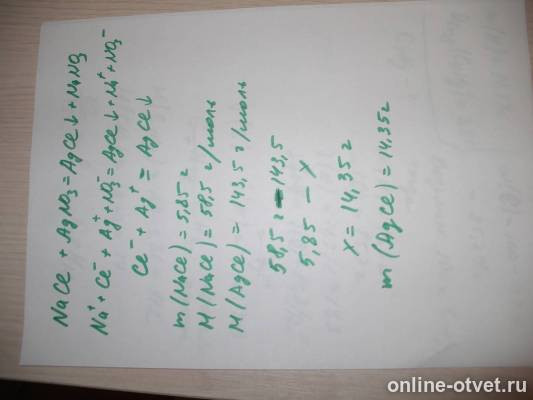 NaCl + AgNO₃ = AgCl↓ + NaNO₃
Na⁺ + Cl⁻ + Ag⁺ + NO₃⁻ = AgCl↓ + Na⁺ + NO₃⁻
Cl⁻ + Ag⁺ = AgCl↓
m(NaCl) = 5,85 г
M(NaCl) = 58,5 г/моль
M(AgCl) = 143,5 г/моль
58,5 г - 143,5
5,85 - x
x = 14,35 г
m(AgCl) = 14,35г
online-otvet.ru